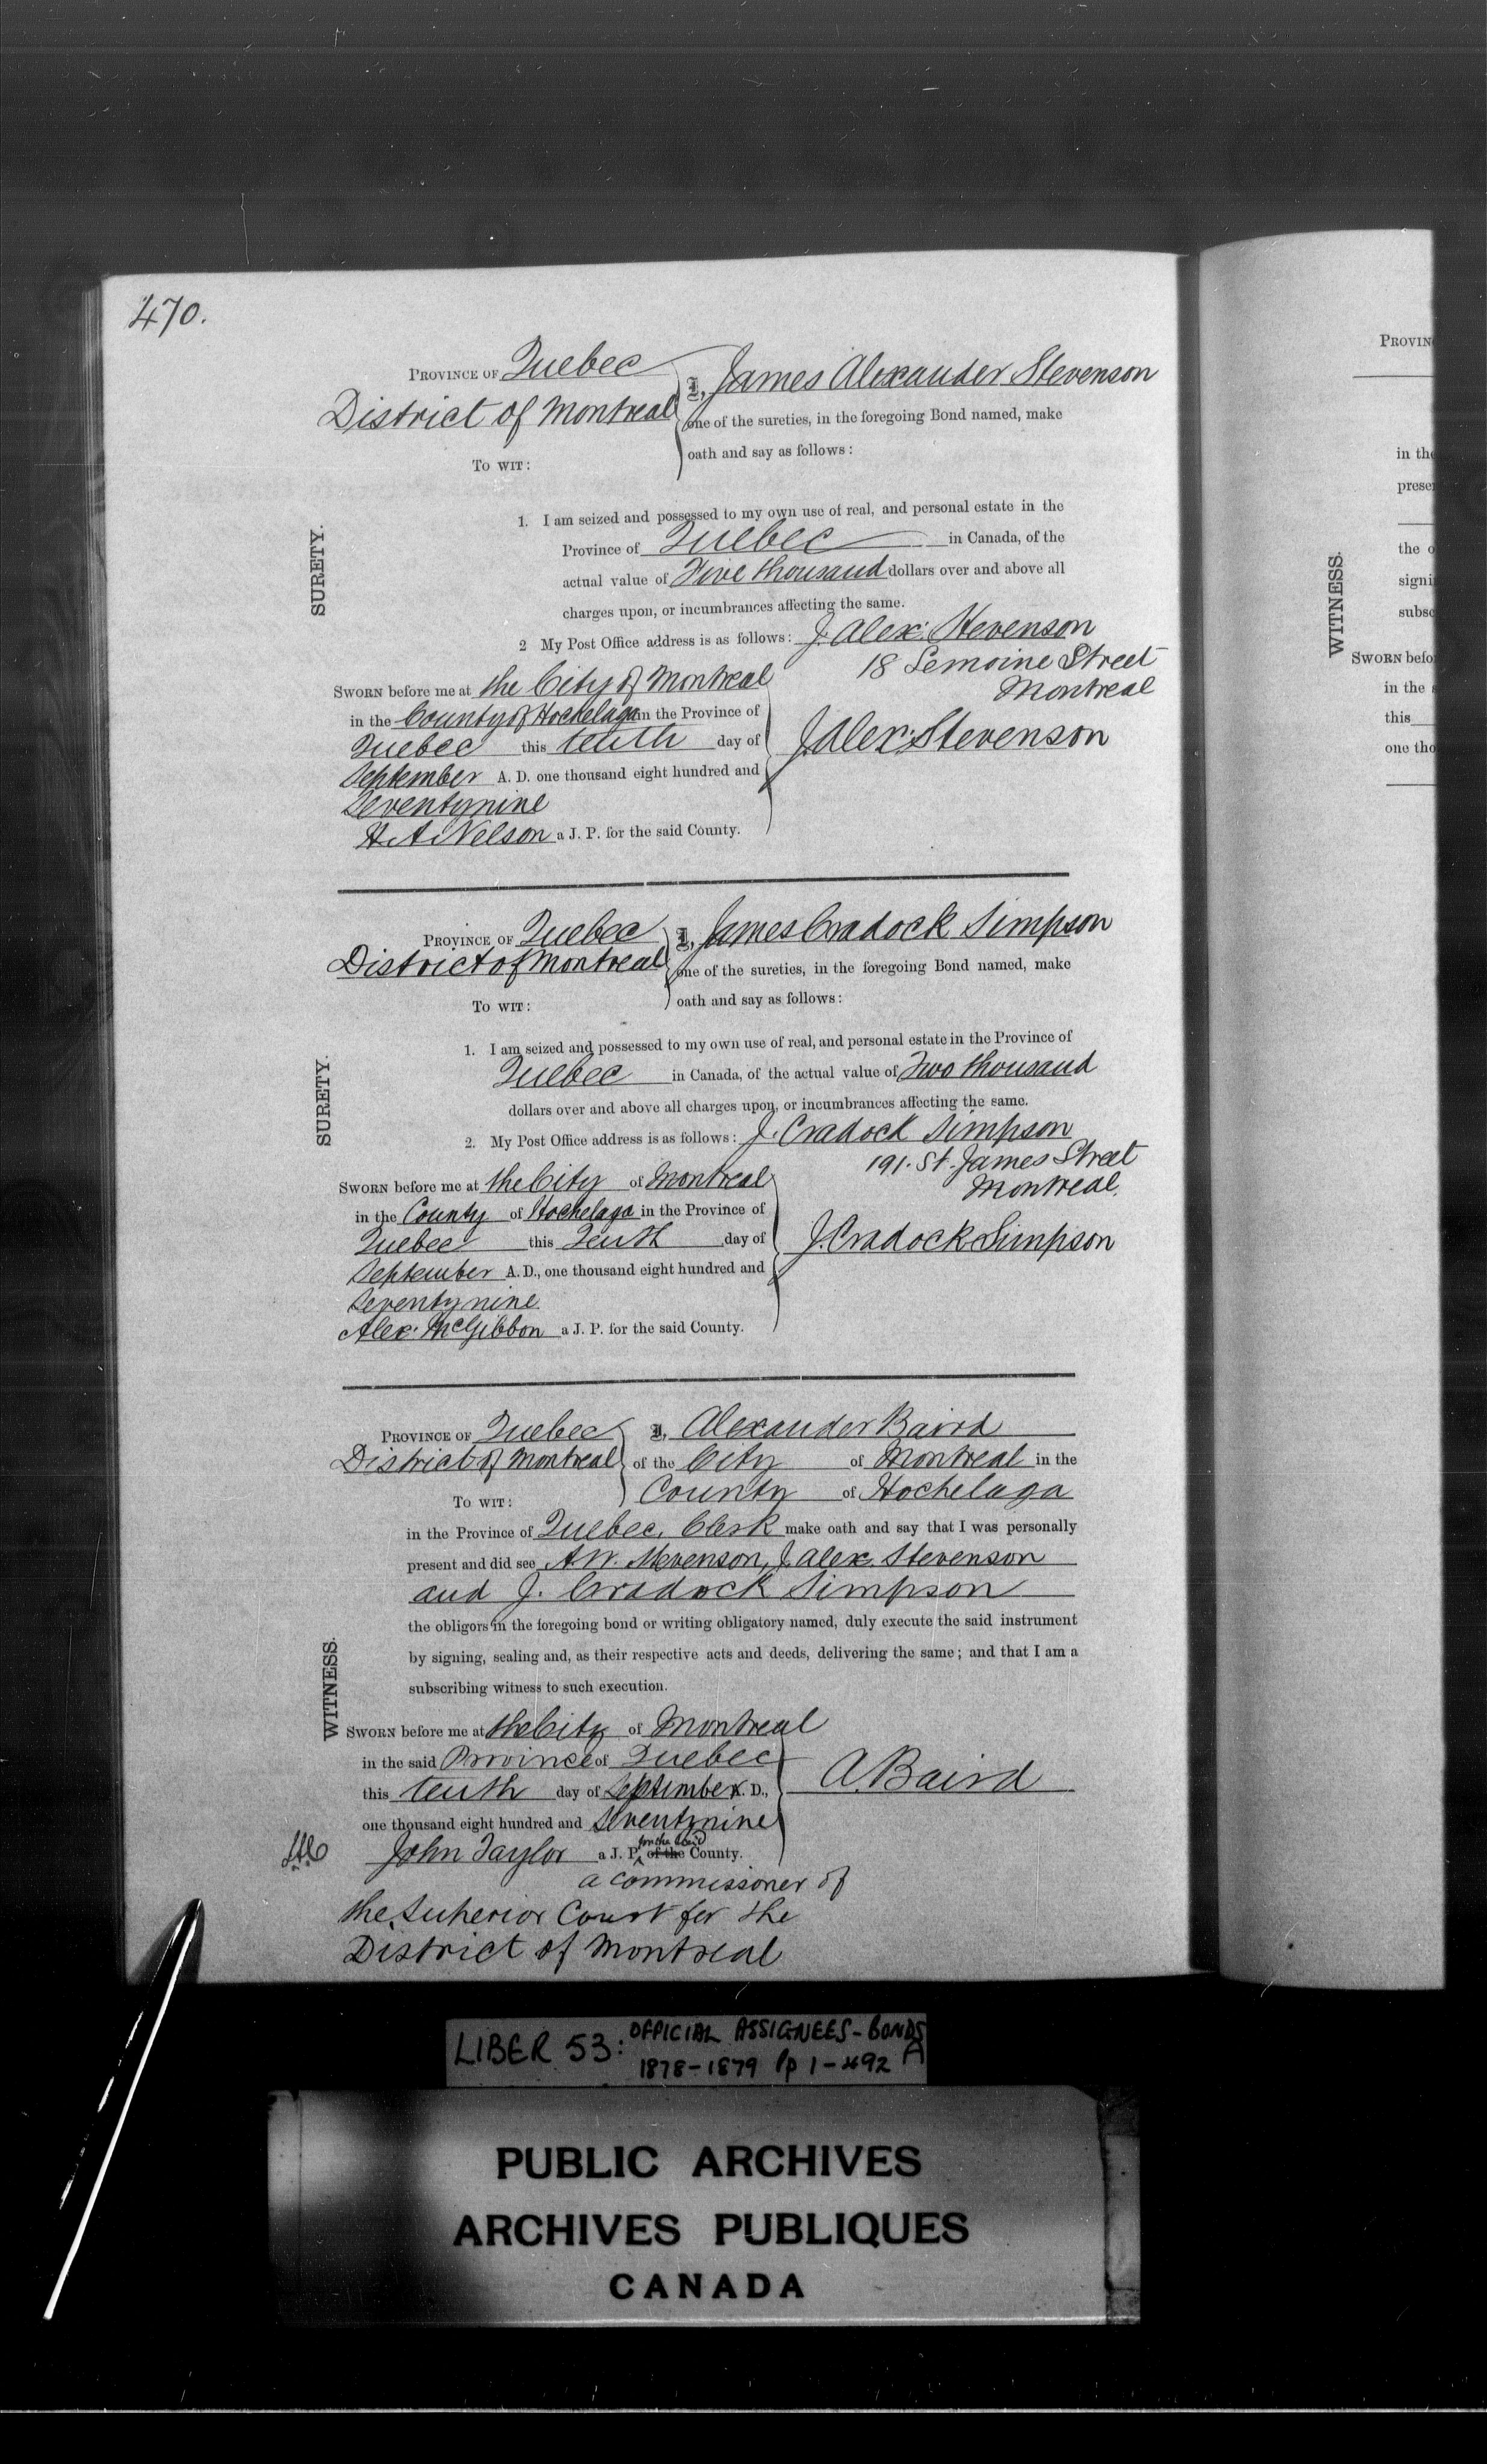 470.
PROVINCE OF Quebec
District of Montreal
TO WIT:
I, James Alexander Stevenson
one of the sureties, in the foregoing Bond named, make
oath and say as follows:
SURETY.
1. I am seized and possessed to my own use of real, and personal estate in the
Province of Quebec in Canada, of the
actual value of Five thousand dollars over and above all
charges upon, or incumbrances affecting the same.
2 My Post Office address is as follows: J. Alex: Stevenson
18 Lemoine Street
Montreal
SWORN before me at the City of Montreal
in the County of Hochelaga in the Province of
Quebec this tenth day of
September A. D. one thousand eight hundred and
Seventynine
H. A. Nelson a J. P. for the said County.
J Alex: Stevenson
PROVINCE OF Quebec
District of Montreal
TO WIT:
I, James Cradock Simpson
one of the sureties, in the foregoing Bond named, make
oath and say as follows:
SURETY.
1. I am seized and possessed to my own use of real, and personal estate in the Province of
Quebec in Canada, of the actual value of Two thousand
dollars over and above all charges upon, or incumbrances affecting the same.
2. My Post Office address is as follows: J. Cradock Simpson
191. St. James Street
Montreal.
SWORN before me at the City of Montreal
in the County of Hochelaga in the Province of
Quebec this Tenth day of
September A. D., one thousand eight hundred and
Seventynine
Alex: McGibbon a J. P. for the said County.
J. Cradock Simpson
PROVINCE OF Quebec
District of Montreal
TO WIT:
I, Alexander Baird
of the City of Montreal in the
County of Hochelaga
in the Province of Quebec, Clerk make oath and say that I was personally
present and did see A W. Stevenson, J. Alex. Stevenson
and J. Cradock Simpson
the obligors in the foregoing bond or writing obligatory named, duly execute the said instrument
by signing, sealing and, as their respective acts and deeds, delivering the same; and that I am a
subscribing witness to such execution.
WITNESS.
SWORN before me at the City of Montreal
in the said Province of Quebec
this tenth day of September A. D.,
one thousand eight hundred and Seventynine
John Taylor a J. P. for the said of the County.
a commissoner of
the Superior Court for the
District of Montreal
A. Baird
PROVIN
in the
prese
the o
signi
subsc
WITNESS.
SWORN befo
in the
this
one tho
LIBER 53: OFFICIAL ASSIGNEES - BONDS
1878-1879 Pp 1-492 A
PUBLIC ARCHIVES
ARCHIVES PUBLIQUES
CANADA